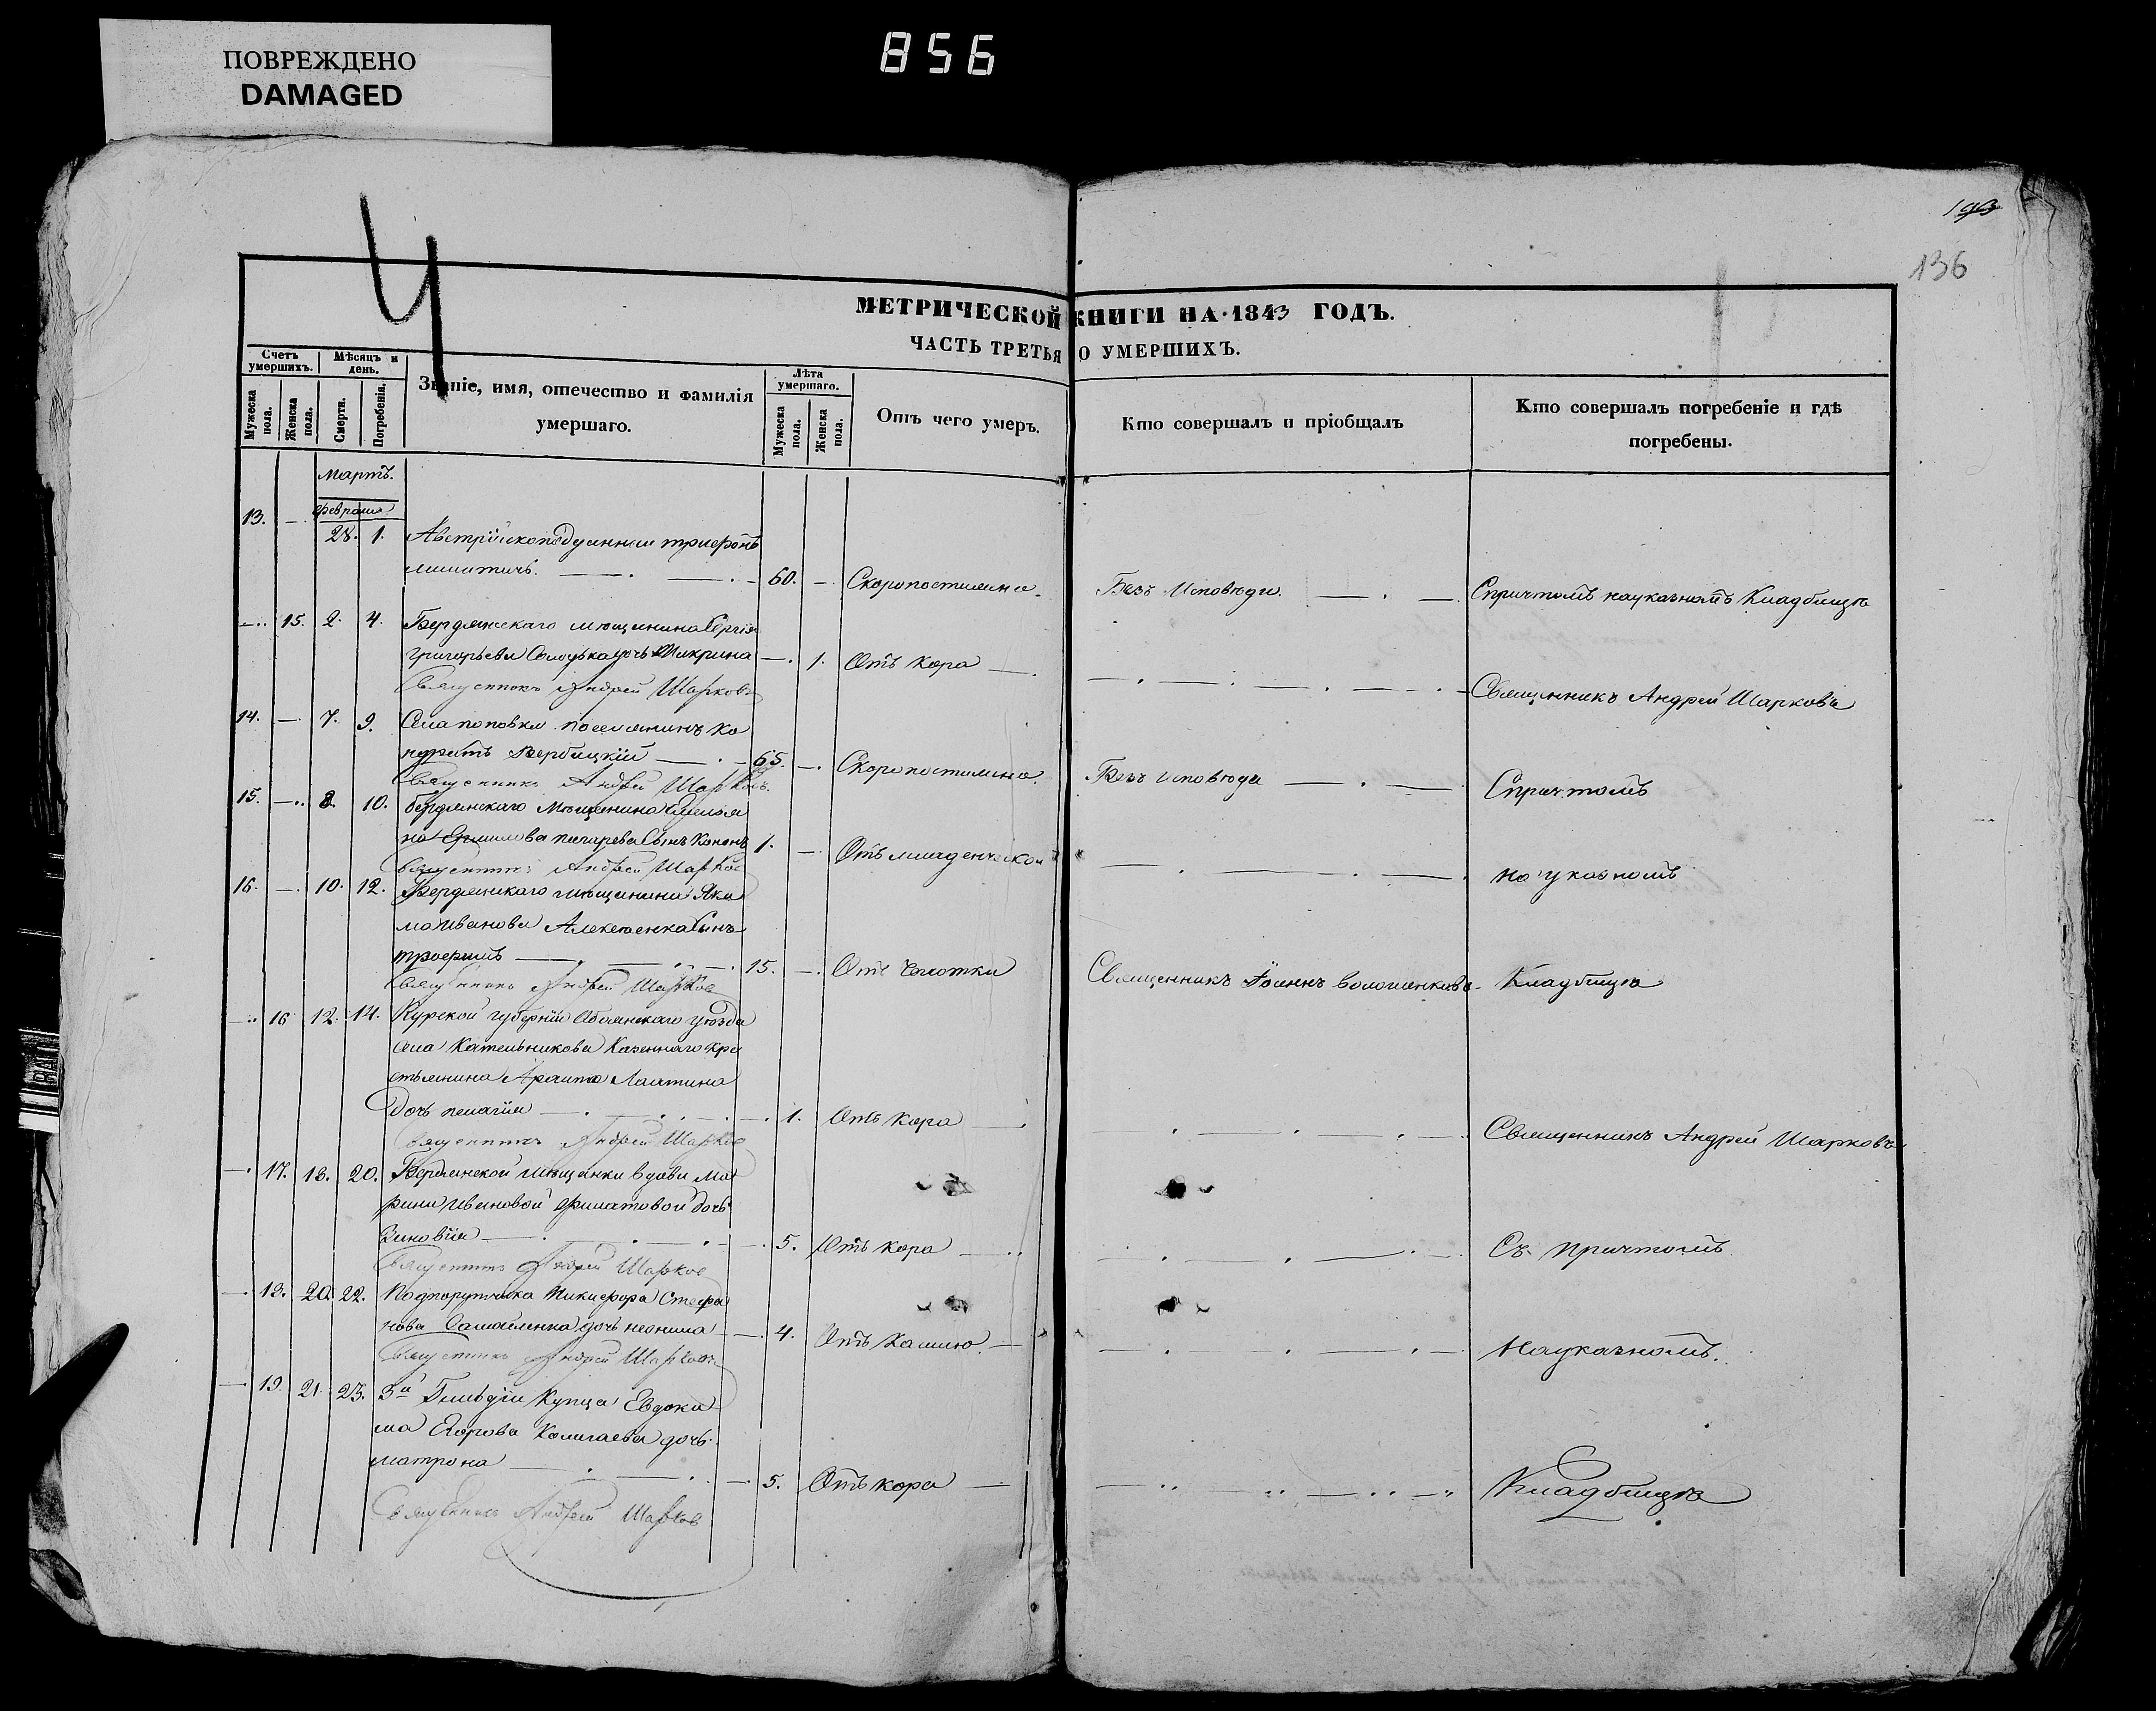 ПОВРЕЖДЕНО
DAMAGED
856
193
136
МЕТРИЧЕСКОЙ КНИГИ НА 1843 ГОДЪ.
ЧАСТЬ ТРЕТЬЯ О УМЕРШИХЪ.
Счетъ умершихъ.
Мѣсяцъ и день.
Званіе, имя, отечество и фамилія умершаго.
Лѣта умершаго.
Отъ чего умеръ.
Кто совершалъ и пріобщалъ
Кто совершалъ погребеніе и гдѣ погребены.
Мужеска пола.
Женска пола.
Смерти.
Погребенія.
Мужеска пола.
Женска пола.
Мартъ.
13. февраля
28. 1. Австрійскоподданный
60. Скоропостижно. Безъ Исповѣди. Спричтомъ науказномъ Кладбищѣ
15. 2. 4. Бердянскаго мѣщанина Сергія
Григорьева дочь 1. Отъ кора
Священникъ Андрей Шарковъ Священникъ Андрей Шарковъ
14. 7. 9. Села поповки поселянинъ Ко
ндратъ Вербицкій 65. Скоропостижно. Безъ исповѣди Спричтомъ
Священникъ Андрей Шарковъ
15. 8. 10. бердянскаго Мѣщанина Емелья
на Сынъ Кононъ 1. Отъ младенческой на указномъ
Священникъ Андрей Шарков
16. 10. 12. Бердянскаго мѣщанина Яко
ма Иванова Алексеенка Сынъ
15. Отъ Чахотки Священникъ Іоаннъ Кладбищѣ
Священникъ Андрей Шарков
16 12. 14. Курской губерніи Обоянскаго уѣзда
села Котельникова Казеннаго кре
стьянина Лактина
дочь пелагія 1. Отъ кора Священникъ Андрей Шарковъ
Священникъ Андрей Шарков
17. 18. 20. Бердянской мѣщанки вдовы Ма
рины Ивановой Филатовой дочь
Зиновія 5. Отъ кора Съ причтомъ
Священникъ Андрей Шарков
18. 20. 22. Подпорутчика Никифора Стефа
нова дочь неонила 4. Отъ Кашлю Науказномъ.
Священникъ Андрей Шарковъ
19. 21. 23. 3й Гильдіи Купца Евдоки
ма Егорова дочь
матрона 5. Отъ кора Кладбищѣ
Священникъ Андрей Шарков